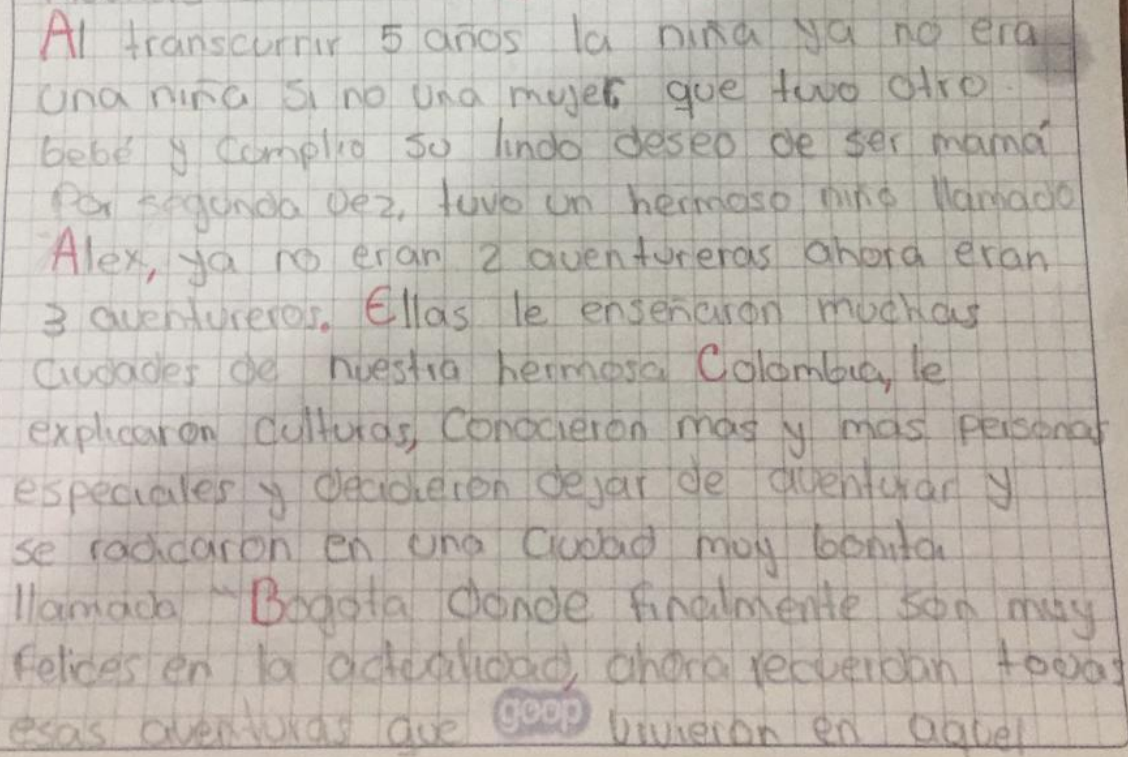 Al transcurrir 5 años la niña ya no era
una niña si no una mujer que tuvo otro
bebé y complio su lindo deseo de ser mamá
Por segunda vez, tuvo un hermoso niño llamado
Alex, ya no eran 2 aventureras ahora eran
3 aventureros. Ellas le enseñaron muchas
ciudades de nuestra hermosa Colombia, le
explicaron culturas, Conocieron mas y mas personas
especiales y decidieron dejar de aventurar y
se radicaron en una Ciudad muy bonita
llamada "Bogota donde finalmente son muy
felices en la actualidad, ahora recuerdan todas
esas aventuras que goop vivieron en aquel